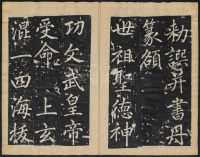 勑譔并書丹
篆額
世祖聖德神
功文武皇帝
受命上玄
混一四海棱